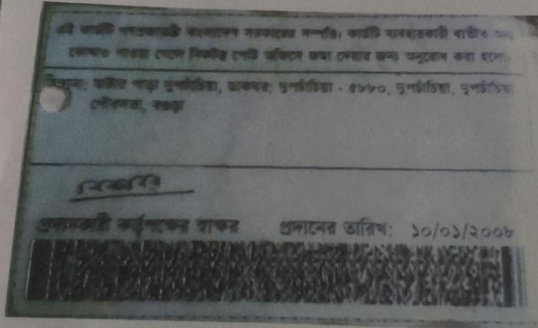 এই কার্ডটি গণপ্রজাতন্ত্রী বাংলাদেশ সরকারের সম্পত্তি। কার্ডটি ব্যবহারকারী ব্যতীত অন্য
কোথাও পাওয়া গেলে নিকটস্থ পোষ্ট অফিসে জমা দেবার জন্য অনুরোধ করা হলো।
পাড়া দুপচাঁচিয়া, ডাকঘর: দুপচাঁচিয়া - ৫৮৮০, দুপচাঁচিয়া, দুপচাঁচিয়া
পৌরসভা, বগুড়া
প্রদানকারী কর্তৃপক্ষের স্বাক্ষর প্রদানের তারিখ: ১০/০১/২০০৮